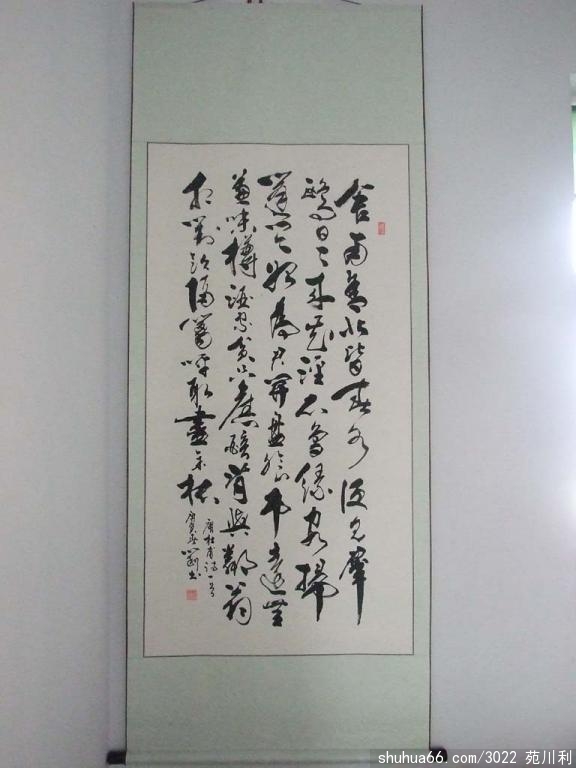 舍南舍北皆春水但見羣
鷗日日來花徑不曾緣客掃
蓬門今始為君開盤飧市遠無
兼味樽酒家貧只舊醅肯與鄰翁
相對飲隔籬呼取盡余杯
唐杜甫詩一首
shuhua66.com/3022 苑川利